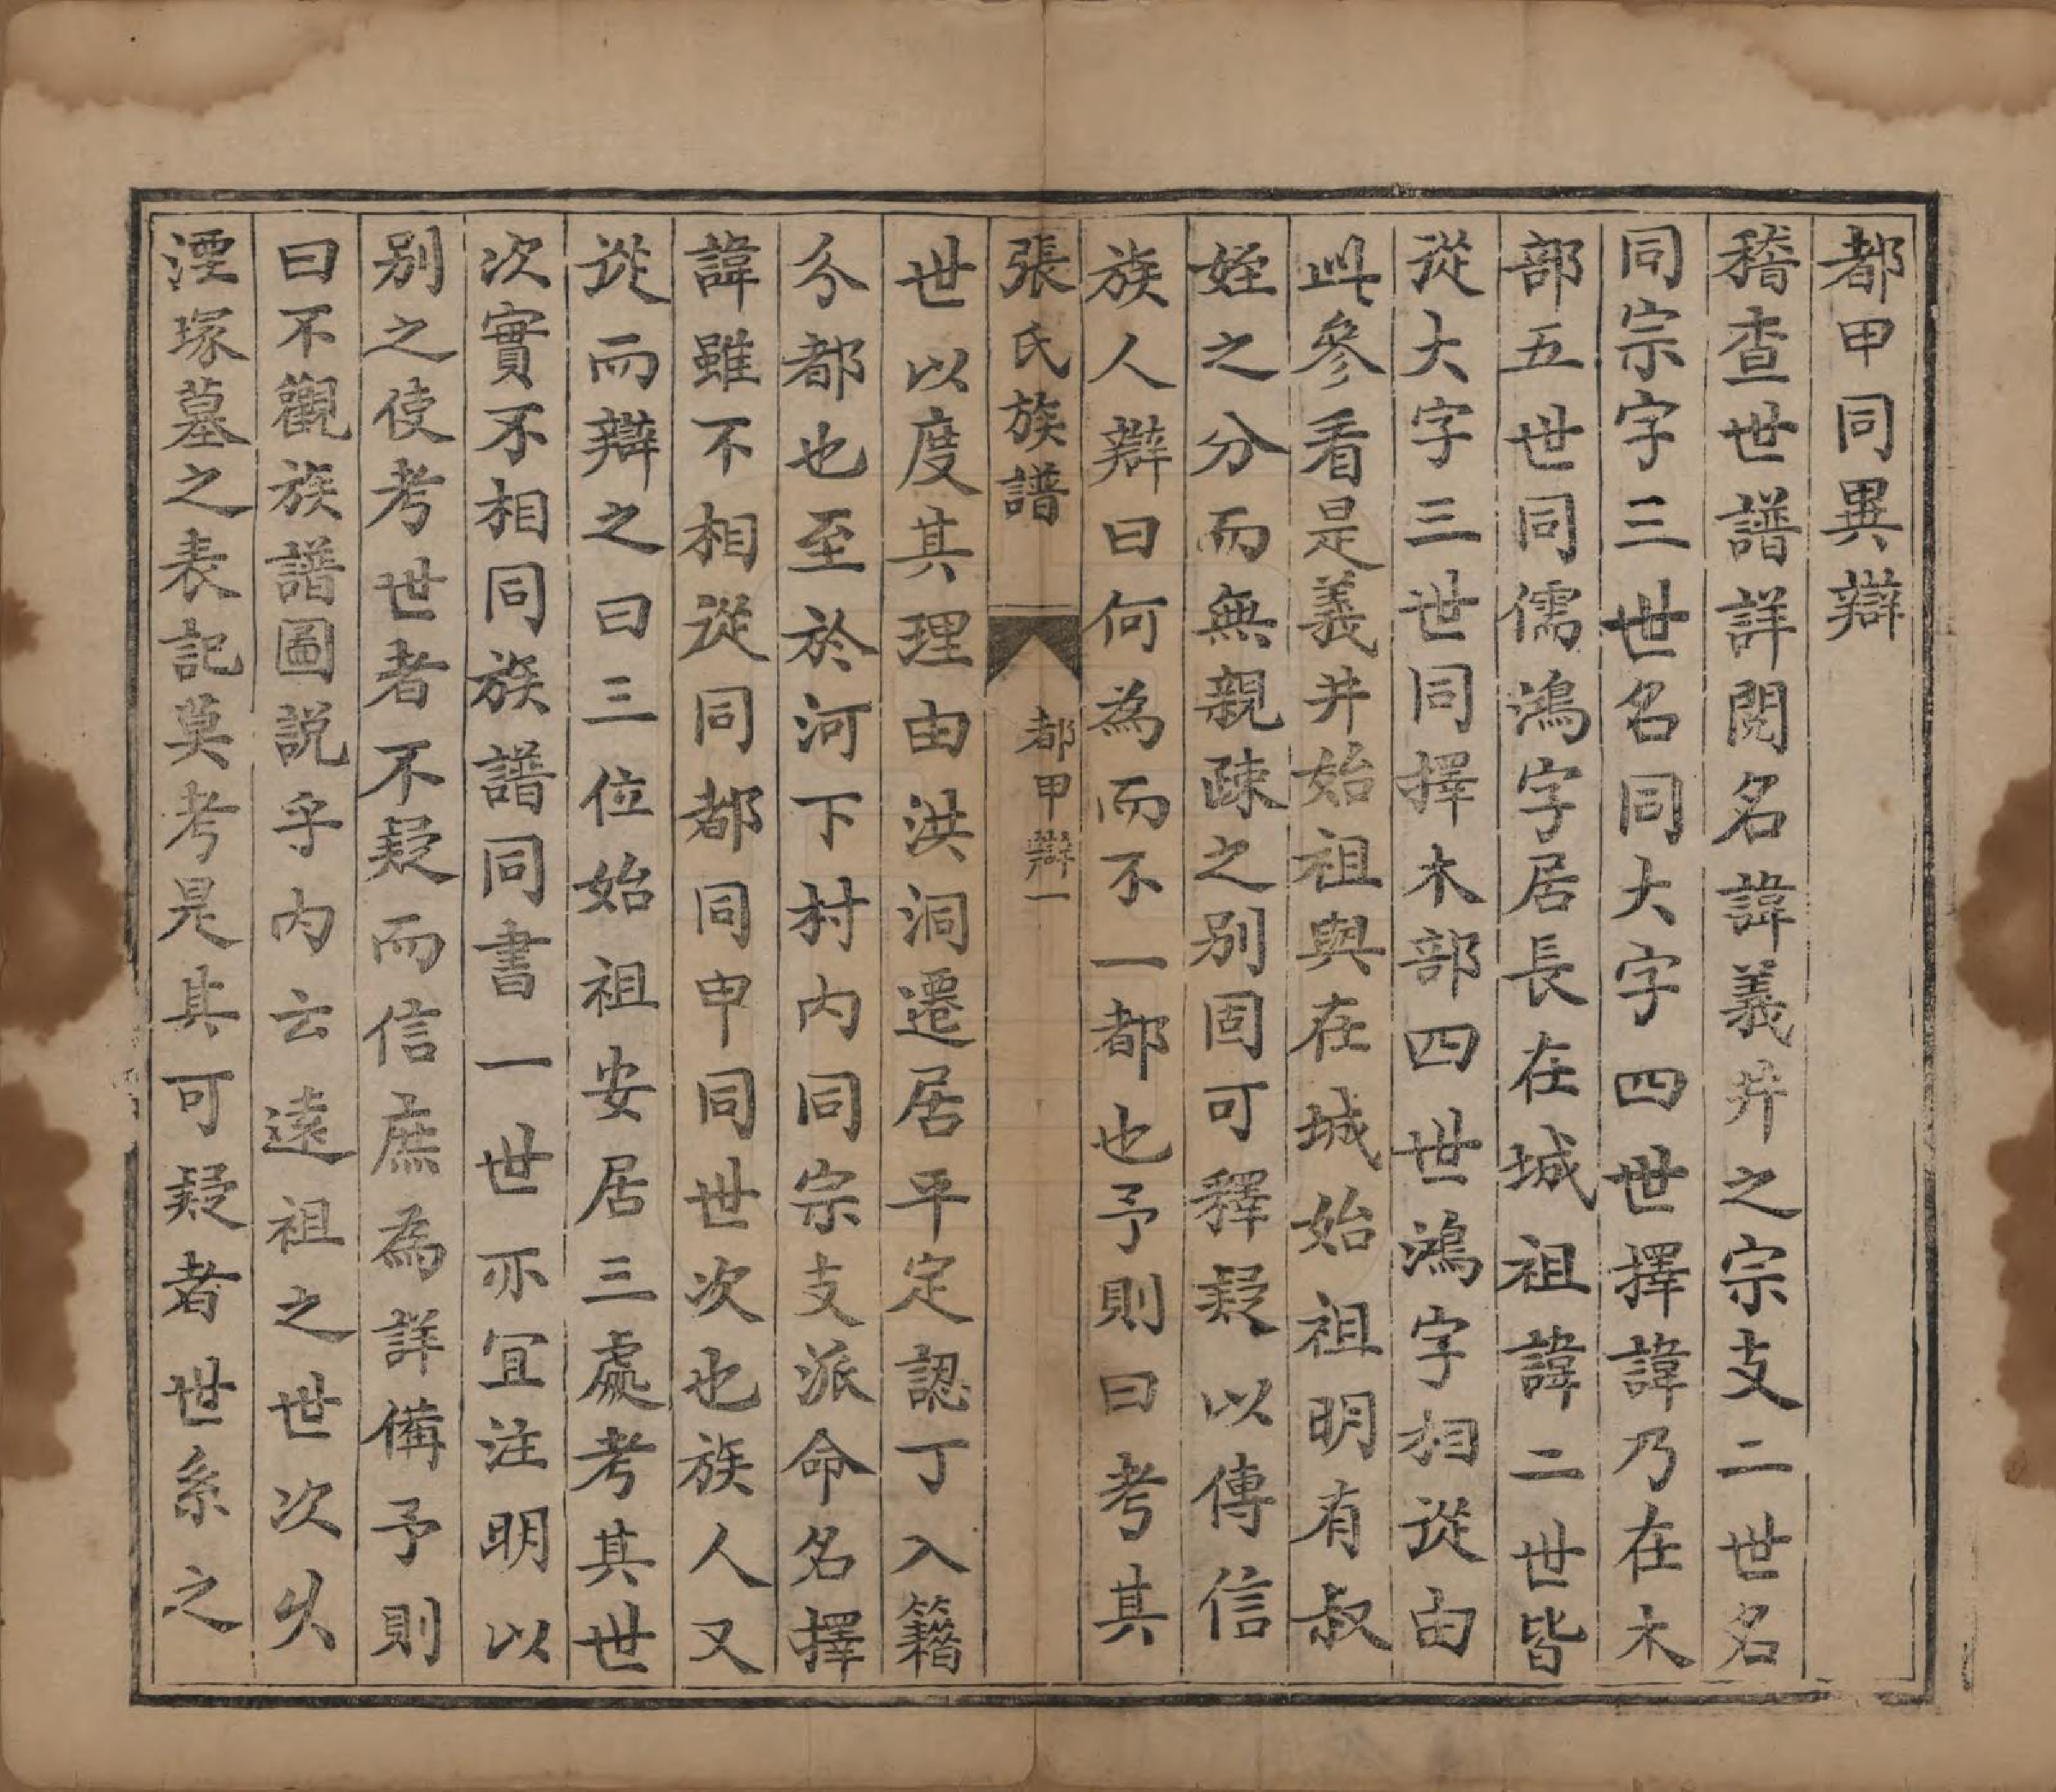 都甲同異辯
稽查世譜詳閱名諱義井之宗支二世名
同宗字三世名同大字四世擇諱乃在木
部五世同儒鴻字居長在城祖諱二世皆
從大字三世同擇木部四世鴻字相從由
此參看是義井始祖與在城始祖明有叔
姪之分而無親疎之別固可釋疑以傳信
族人辯曰何為而不一都也予則曰考其
張氏族譜 都甲辯一
世以度其理由洪洞遷居平定認丁入籍
分都也至於河下村内同宗支派命名擇
諱雖不相從同都同申同世次也族人又
從而辯之曰三位始祖安居三處考其世
次實不相同族譜同書一世亦宜注明以
別之使考世者不疑而信庶為詳備予則
曰不觀族譜圖説乎内云遠祖之世次失
湮塚墓之表記莫考是其可疑者世系之